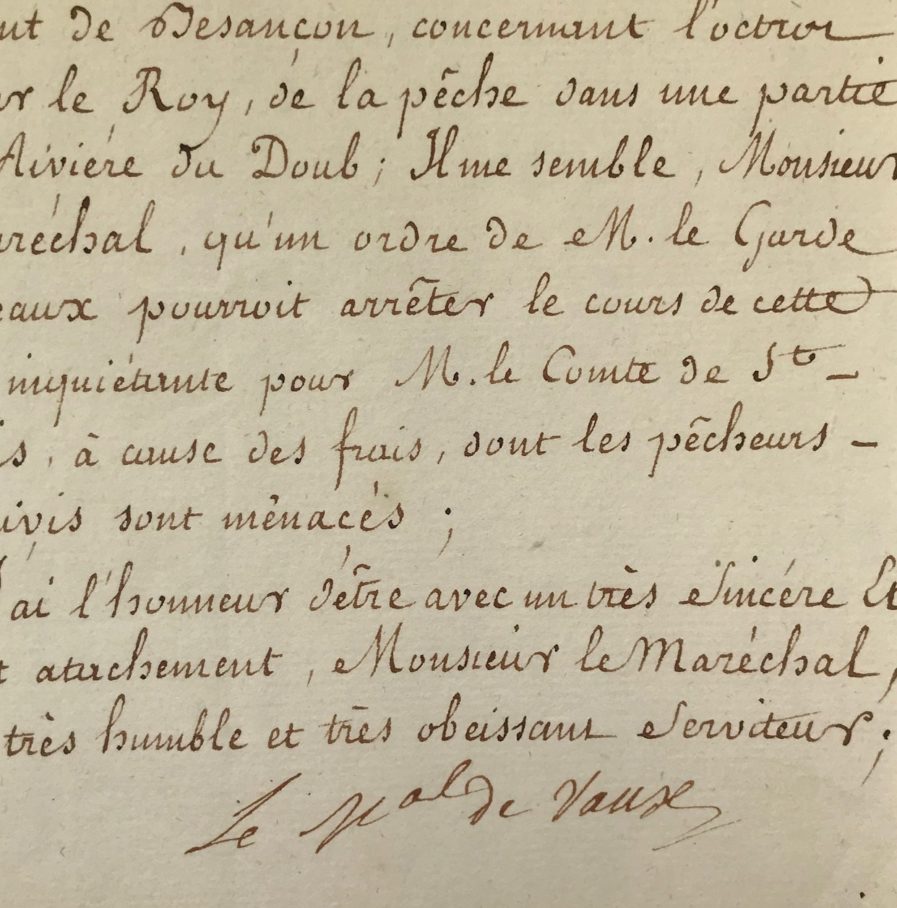 nt de Besançon, concernant l'octroi
ar le Roy, de la pêche dans une partie
Riviére du Doub; Il me semble, Monsieur
aréchal, qu'un ordre de M. le Garde
eaux pourroit arrêter le cours de cette
inquiétante pour M. le Comte de St_
is, à cause des frais, dont les pêcheurs _
ivis sont ménacés;
J'ai l'honneur d'être avec un très Sincére Et
t atachement, Monsieur le Maréchal,
très humble et très obeissant Serviteur;
Le Mal de Vaux